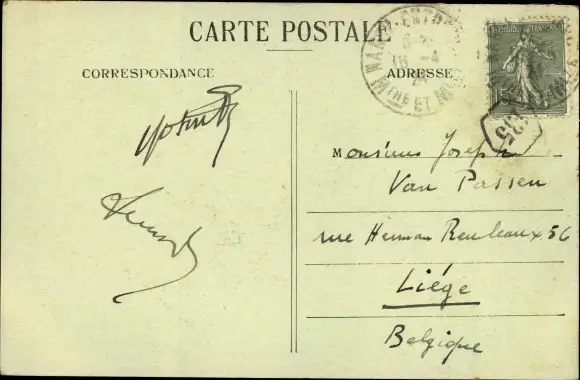 CARTE POSTALE
CORRESPONDANCE
ADRESSE
REPUBLIQUE FRANÇAISE
15c
NANCY-ENTREPOT
16 -4
Mthe ET Mlle
135
Monsieur Joseph
Van Passen
rue Herman Reuleaux 56
Liége
Belgique